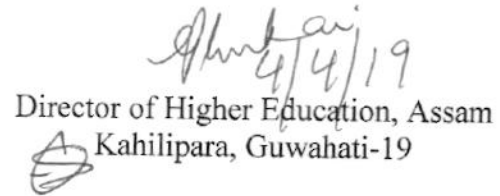 4/4/19
Director of Higher Education, Assam
Kahilipara, Guwahati-19